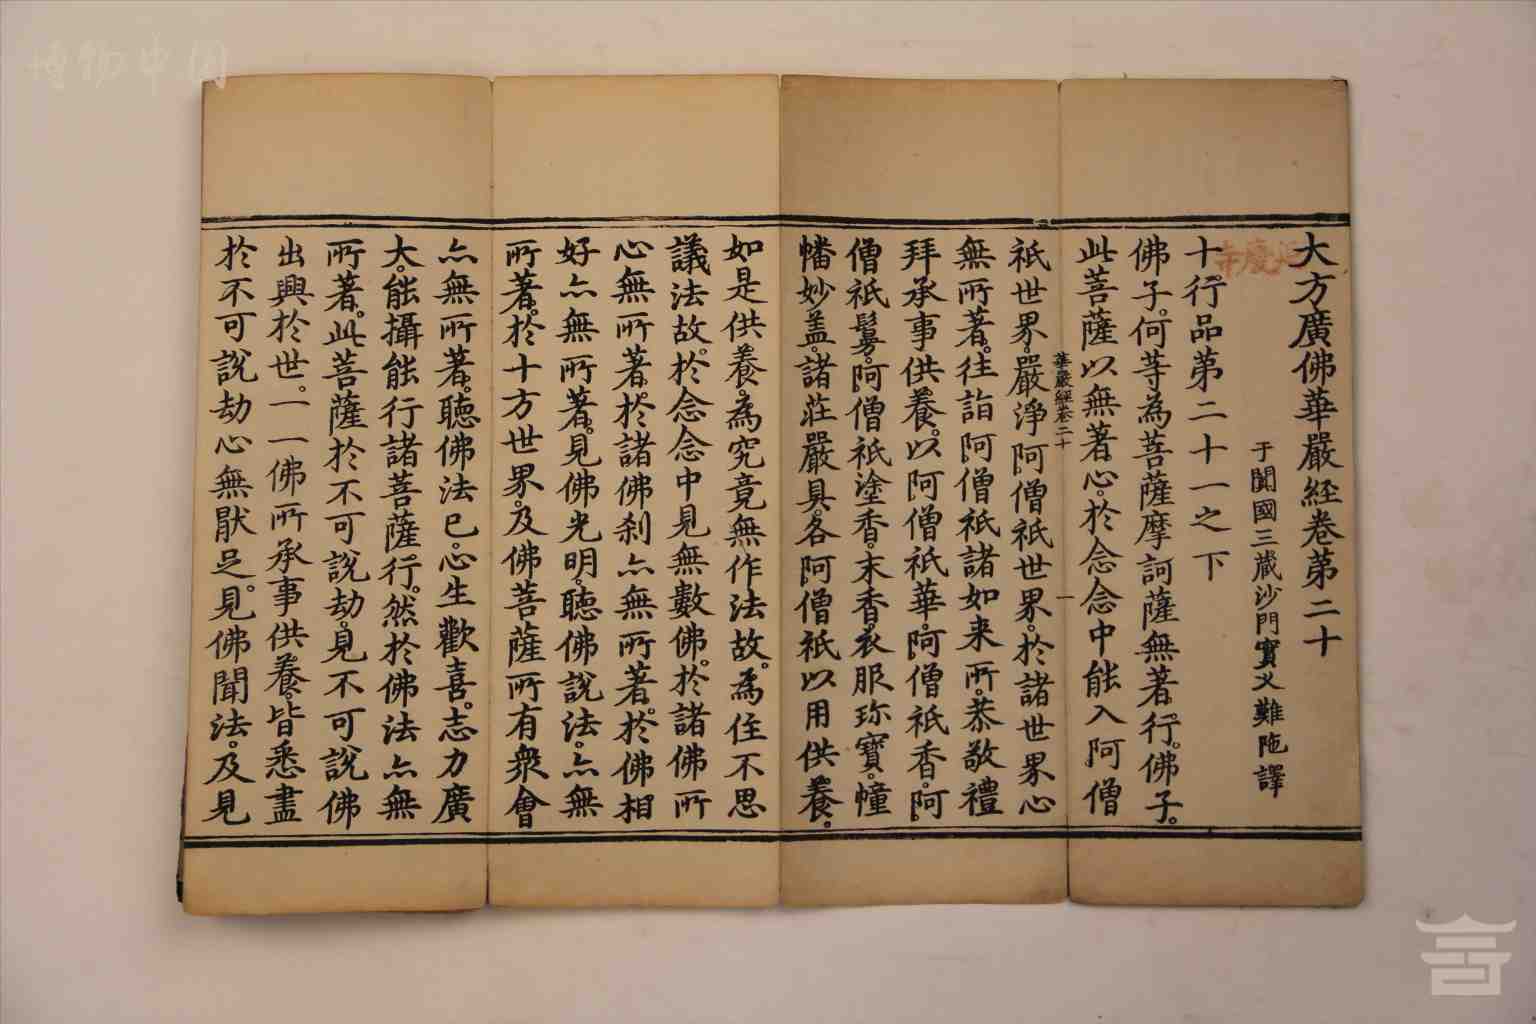 大方廣佛華嚴経卷第二十
于闐國三藏沙門實叉難陁譯
延慶寺
十行品第二十一之下
佛子。何等為菩薩摩訶薩無著行。佛子。
此菩薩以無著心。於念念中能入阿僧
華嚴經卷二十
一
祇世界。嚴淨阿僧祇世界。於諸世界心
無所著。往詣阿僧祇諸如来所。恭敬禮
拜承事供養。以阿僧祇華。阿僧祇香。阿
僧祇鬘。阿僧祇塗香。末香。衣服珎寶。幢
幡妙盖。諸莊嚴具。各阿僧祇以用供養。
如是供養。為究竟無作法故。為住不思
議法故。於念念中見無數佛。於諸佛所
心無所著。於諸佛刹亦無所著。於佛相
好亦無所著。見佛光明。聽佛說法。亦無
所著。於十方世界。及佛菩薩所有衆會
亦無所著。聽佛法已。心生歡喜。志力廣
大。能攝能行諸菩薩行。然於佛法亦無
所著。此菩薩於不可說劫。見不可說佛
出興於世。一一佛所承事供養。皆悉盡
於不可說劫心無猒足。見佛聞法。及見
博物中国